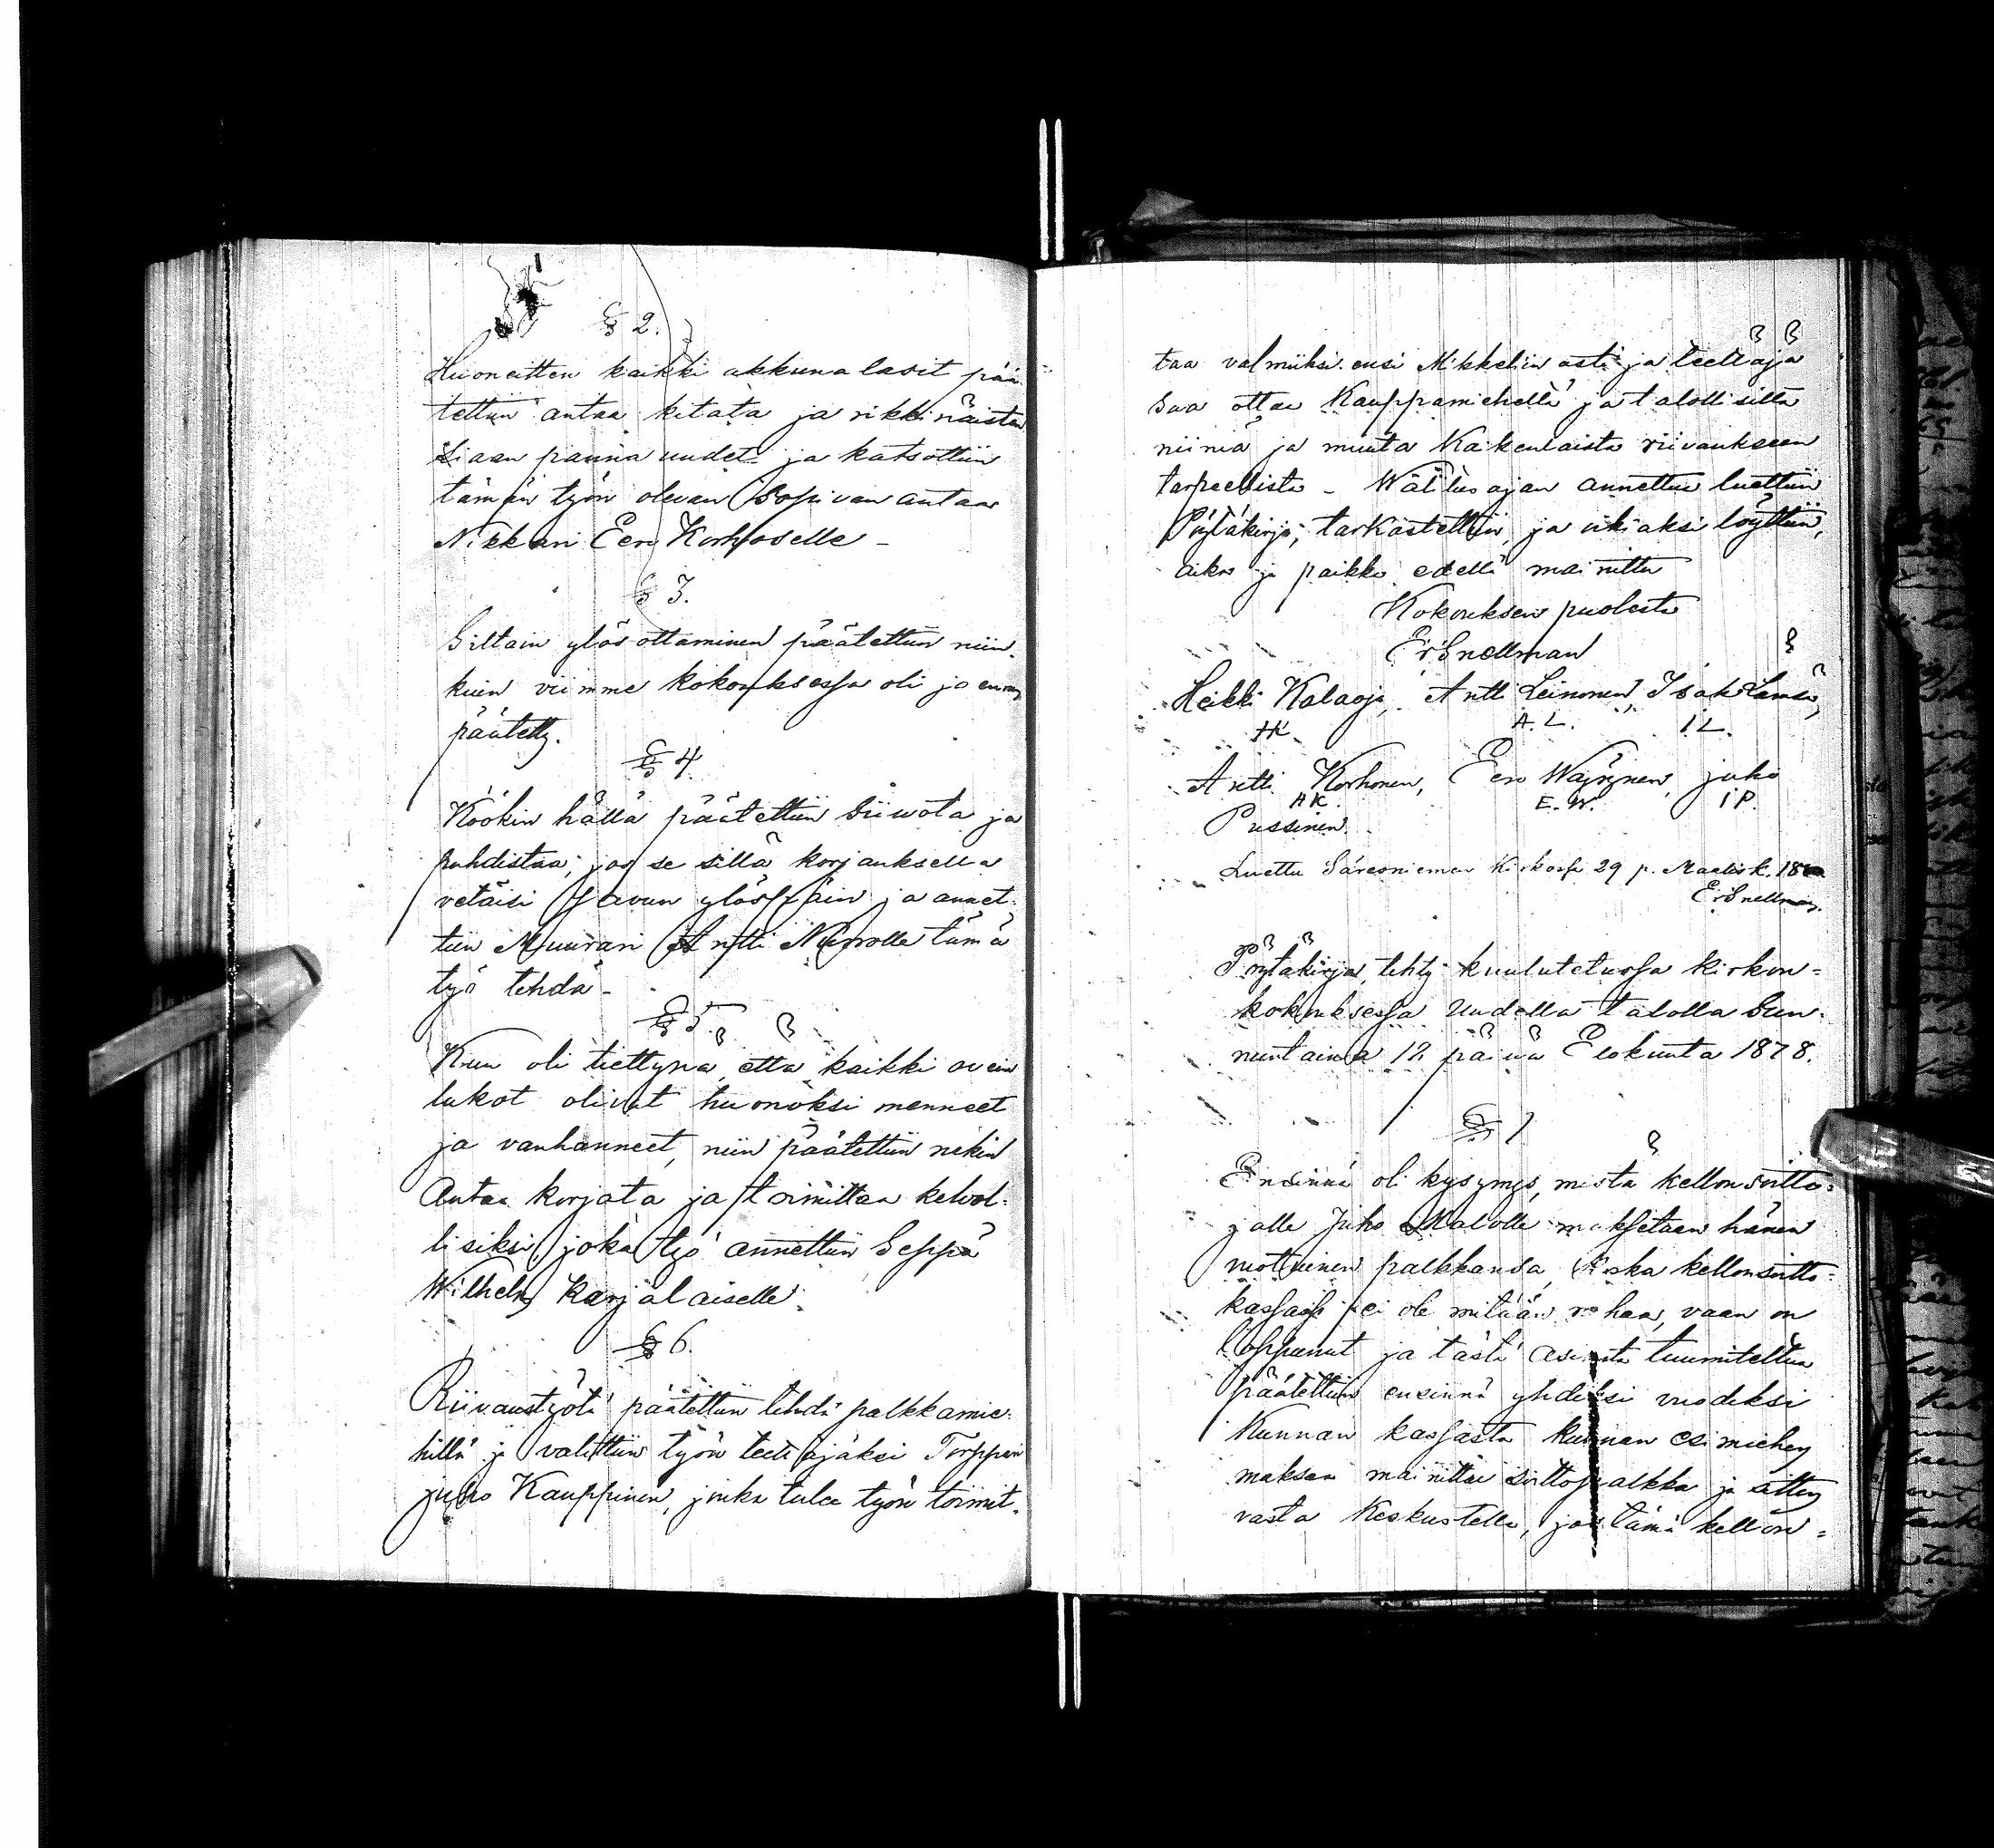 § 2.
Huoneitten kaikki akkuna lasit pää
tettiin antaa kitata ja rikkinäisten
siaan panna uudet ja katsottiin
tämän työn olevan sopivan antaa
Nikkari Eero Korhoselle -
§ 3.
Siltain ylös ottaminen päätettiin niin
kuin viimme kokouksessa oli jo ennen
päätetty.
§ 4
Köökin hällä päätettiin siiwota ja
puhdistaa; jos se sillä korjauksella
vetäisi savun ylöspäin ja annet-
tiin Muurari Antti tämä
työ tehdä -
§ 5.
Kun oli tiettynä, että kaikki ovein
lukot olivat huonoksi menneet
ja vanhanneet, niin päätettiin nekin
Antaa korjata ja toimittaa kelvol-
lisiksi, joka työ annettiin Seppä
Wilhelm Karjalaiselle.
§ 6.
Riivaustyötä päätettiin tehdä palkkamie-
hillä ja valittiin työn teettäjäksi Torppari
juho Kauppinen, jonka tulee työn toimit-
taa valmiiksi ensi Mikkeliin asti ja teettäjä
saa ottaa Kauppamiehellä ja talollisilta
niiniä ja muuta Kaikenlaista riivaukseen
tarpeellista - Wälitusajan annettua luettiin
Pöytäkirja, tarkastettiin, ja oikiaksi löyttiin,
aika ja paikka edellä mainittu
Kokouksen puolesta
Er Snellman
Heikki Kalaoja, Antti Leinonen, Isak Lämsä,
HK. A. L. I L.
Antti Korhonen, Eero Wäyrynen, juho
AK. E. W. I P.
Pussinen.
Luettu Säresniemen Kirkossa 29 p. Maalisk. 18
Er Snellman.
Pöytäkirja, tehty kuulutetussa kirkon-
kokouksessa Uudella talolla Sun-
nuntaina 12 päiwä Elokuuta 1878.
§ 1
Ensinnä oli kysymys, mistä kellonsoitta-
jalle Juho Malolle maksetaan hänen
vuotuinen palkkansa, koska kellonsoitto-
kassassa ei ole mitään rahaa, vaan on
loppunut ja tästä asiasta tuumiteltua
päätettiin ensinnä yhdeksi vuodeksi
Kunnan kassasta kunnan esimiehen
maksaa mainittu soittopalkka ja sitten
vasta Keskustella, jos tämä kellon-